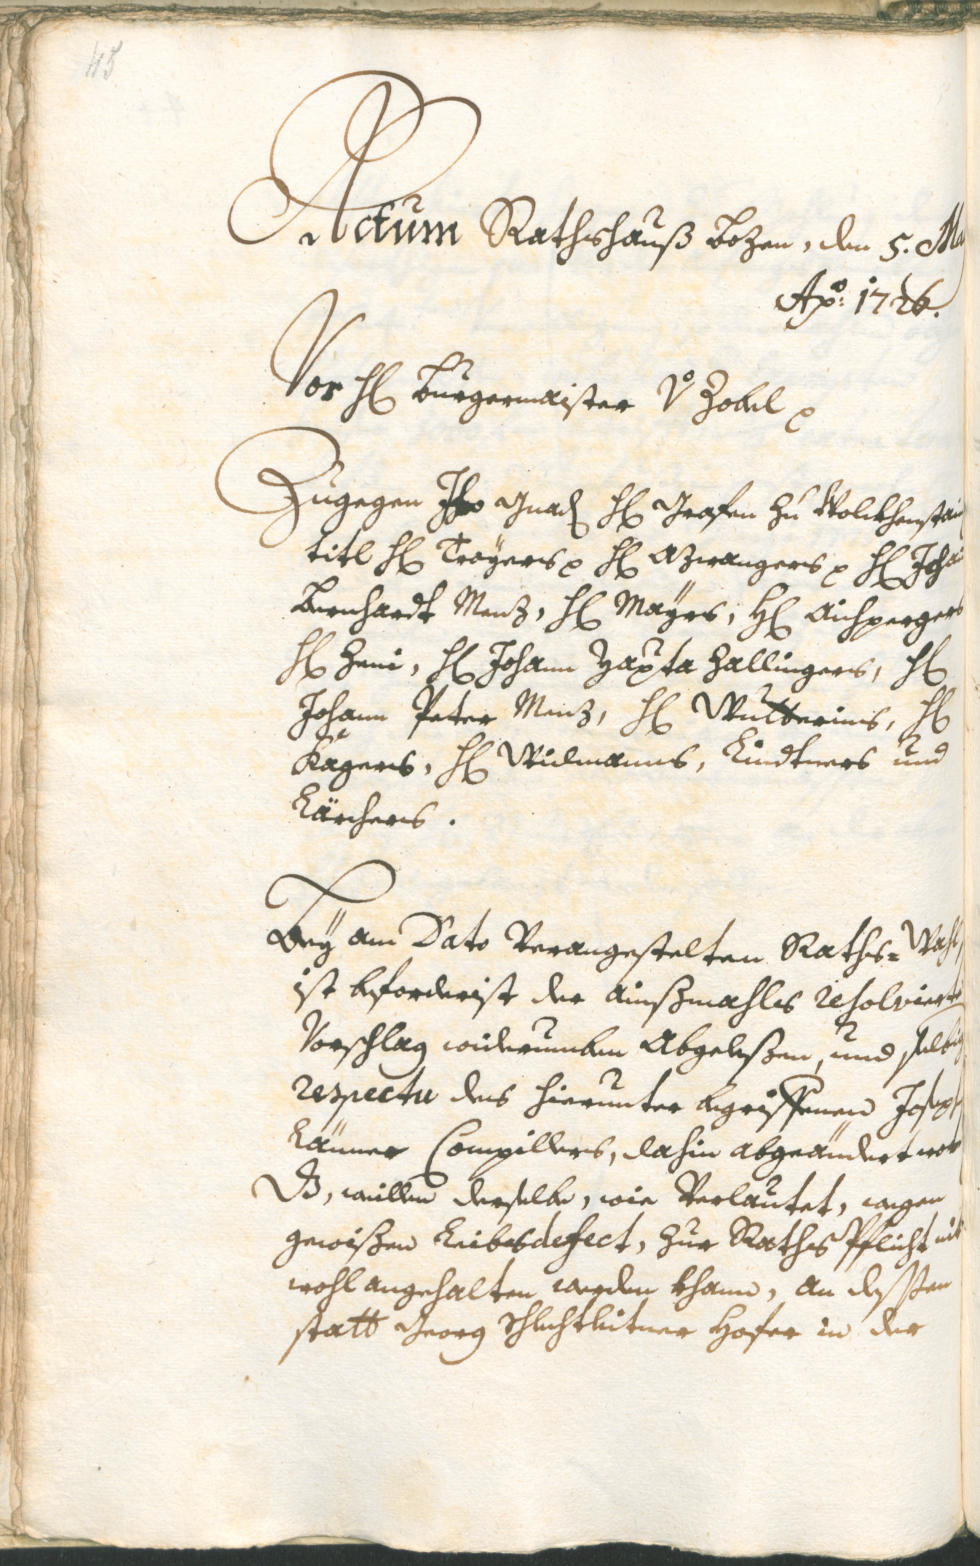 45
Actum Rathshauß Bozen, den 5. Ma
Aõ: 1726.
Vor H Burgermaister V: Zobl p
Zugegen Ihro Gnad H Grafen zu Wolkhenstain
titl H Troyers p H Azwangers p H Joha
Bernhardt Menz, H Mayrs, H Aichpergers
H Heni, H Johann Baptista Zallingers, H
Johann Peter Menz, H Wutterins, H
Kägers, H Widmanns, Lindtners und
Kärchers.
Bey am Dato Verangestelten Raths= Wahl
ist beforderist der ainßmahls resolvierte
Vorschlag widerumben Abgeleßen, und selbig
respectu des hierunter begriffenen Joseph
Länner Compillers, dahin abgeändert wor
D, weillen derselbe, wie Verlautet, wegen
gewißen Leibsdefect, zur Raths Pflicht nit
wohl angehalten werden khann, an dessen
statt Georg Schlechtleitner Hofer in der